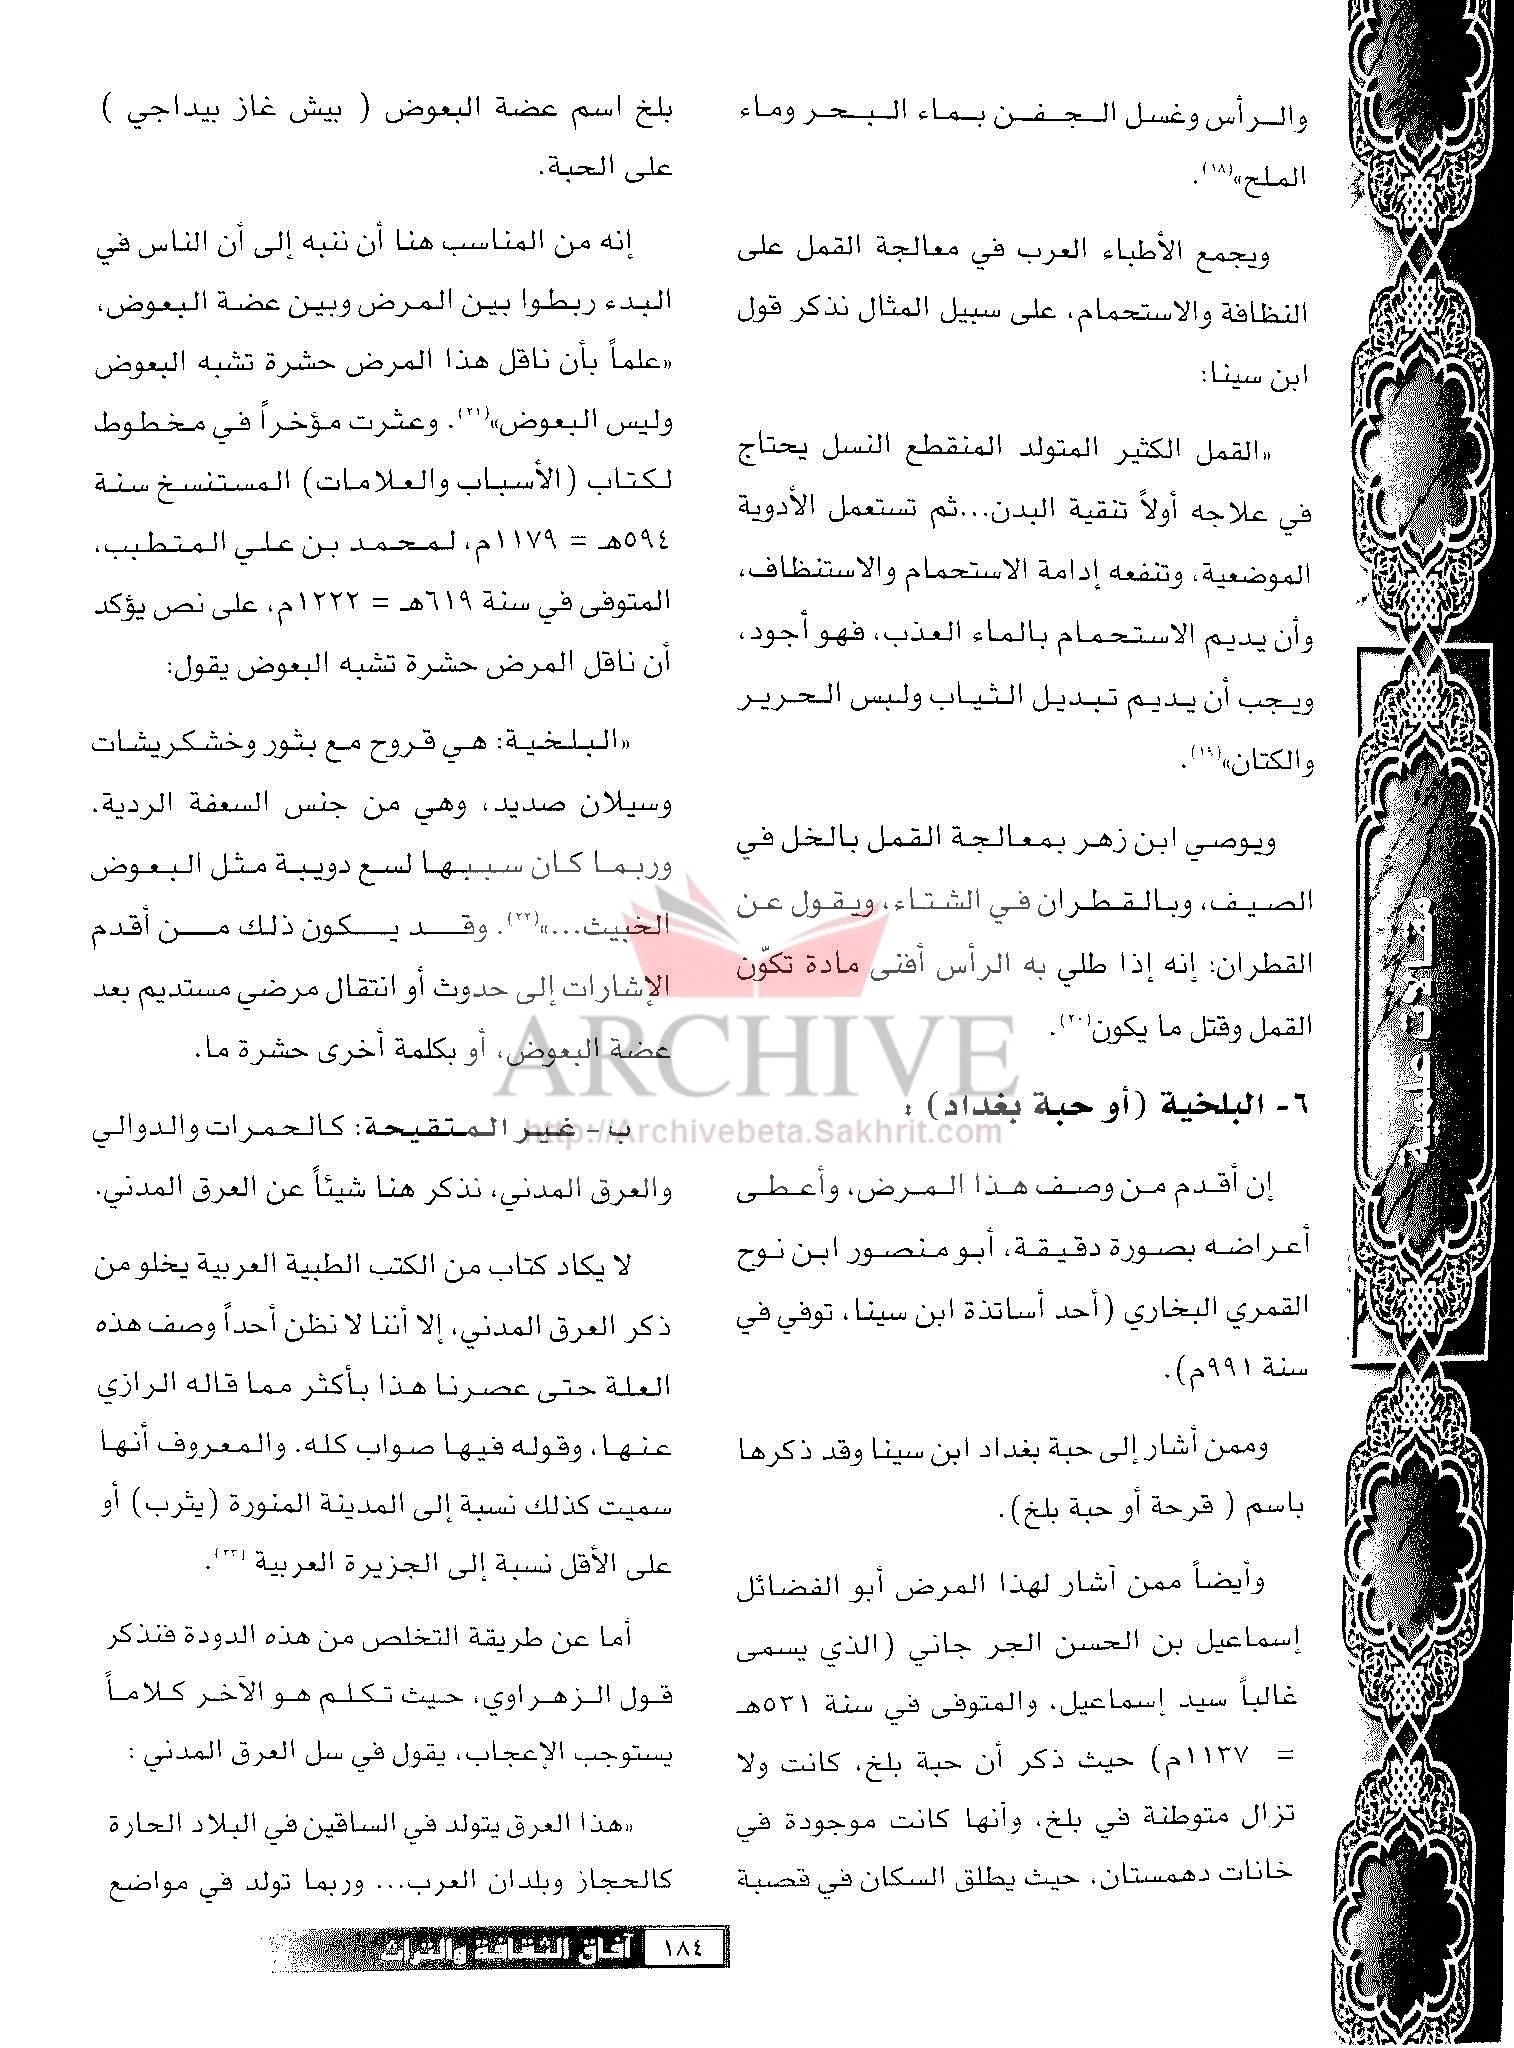 والرأس وغسل الجفن بماء البحر وماء
الملح»(١٨).
ويجمع الأطباء العرب في معالجة القمل على
النظافة والاستحمام، على سبيل المثال نذكر قول
ابن سينا:
«القمل الكثير المتولد المنقطع النسل يحتاج
في علاجه أولاً تنقية البدن...ثم تستعمل الأدوية
الموضعية، وتنفعه إدامة الاستحمام والاستنظاف،
وأن يديم الاستحمام بالماء العذب، فهو أجود،
ويجب أن يديم تبديل الثياب ولبس الحرير
والكتان»(١٩).
ويوصي ابن زهر بمعالجة القمل بالخل في
الصيف، وبالقطران في الشتاء، ويقول عن
القطران: إنه إذا طلي به الرأس أفنى مادة تكوّن
القمل وقتل ما يكون(٢٠).
٦- البلخية (أو حبة بغداد) :
إن أقدم من وصف هذا المرض، وأعطى
أعراضه بصورة دقيقة، أبو منصور ابن نوح
القمري البخاري (أحد أساتذة ابن سينا، توفي في
سنة ٩٩١م).
وممن أشار إلى حبة بغداد ابن سينا وقد ذكرها
باسم ( قرحة أو حبة بلخ).
وأيضاً ممن آشار لهذا المرض أبو الفضائل
إسماعيل بن الحسن الجر جاني (الذي يسمى
غالباً سيد إسماعيل، والمتوفى في سنة ٥٣١هـ
= ١١٣٧م) حيث ذكر أن حبة بلخ، كانت ولا
تزال متوطنة في بلخ، وأنها كانت موجودة في
خانات دهمستان، حيث يطلق السكان في قصبة
بلخ اسم عضة البعوض ( بيش غاز بيداجي )
على الحبة.
إنه من المناسب هنا أن ننبه إلى أن الناس في
البدء ربطوا بين المرض وبين عضة البعوض،
«علماً بأن ناقل هذا المرض حشرة تشبه البعوض
وليس البعوض»(٢١). وعثرت مؤخراً في مخطوط
لكتاب (الأسباب والعلامات) المستنسخ سنة
٥٩٤هـ = ١١٧٩م، لمحمد بن علي المتطبب،
المتوفى في سنة ٦١٩هـ = ١٢٢٢م، على نص يؤكد
أن ناقل المرض حشرة تشبه البعوض يقول:
«البلخية: هي قروح مع بثور وخشكريشات
وسيلان صديد، وهي من جنس السعفة الردية.
وربما كان سببها لسع دويبة مثل البعوض
الخبيث...»(٢٢). وقد يكون ذلك من أقدم
الإشارات إلى حدوث أو انتقال مرضي مستديم بعد
عضة البعوض، أو بكلمة أخرى حشرة ما.
ب- غير المتقيحة: كالحمرات والدوالي
والعرق المدني، نذكر هنا شيئاً عن العرق المدني.
لا يكاد كتاب من الكتب الطبية العربية يخلو من
ذكر العرق المدني، إلا أننا لا نظن أحداً وصف هذه
العلة حتى عصرنا هذا بأكثر مما قاله الرازي
عنها، وقوله فيها صواب كله. والمعروف أنها
سميت كذلك نسبة إلى المدينة المنورة (يثرب) أو
على الأقل نسبة إلى الجزيرة العربية (٢٣).
أما عن طريقة التخلص من هذه الدودة فنذكر
قول الزهراوي، حيث تكلم هو الآخر كلاماً
يستوجب الإعجاب، يقول في سل العرق المدني :
«هذا العرق يتولد في الساقين في البلاد الحارة
كالحجاز وبلدان العرب... وربما تولد في مواضع
مقالات علمية
ARCHIVE
http://Archivebeta.Sakhrit.com
آفاق الثقافة والتراث ١٨٤